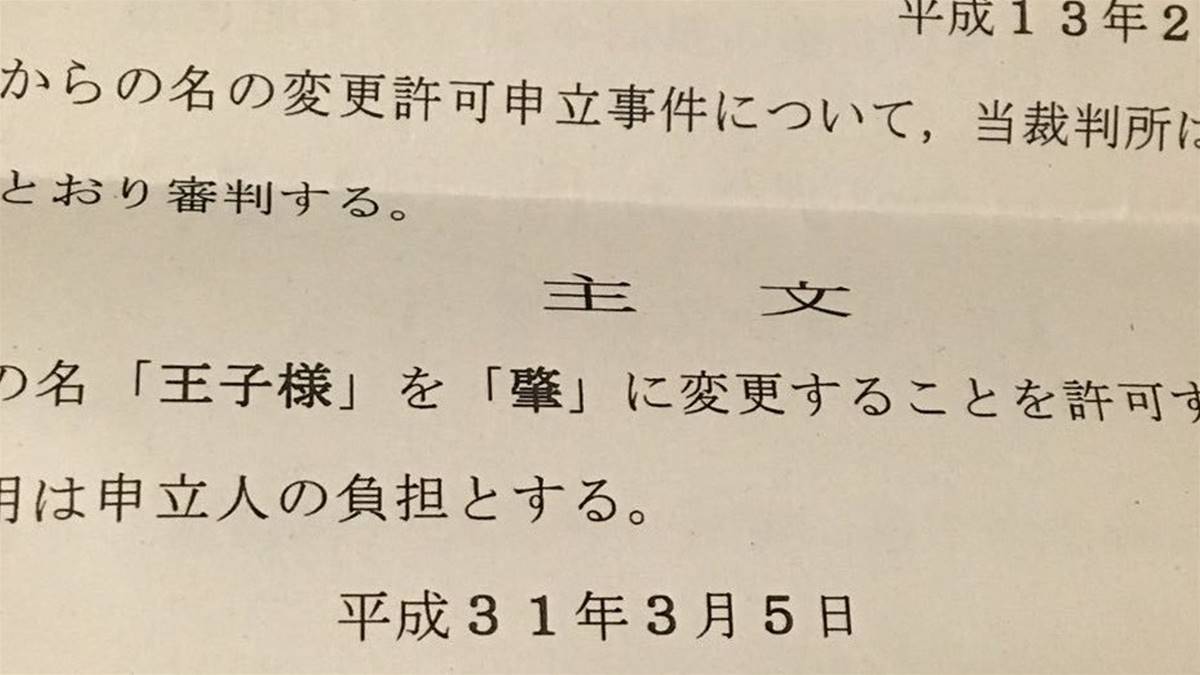 平成13年2
からの名の変更許可申立事件について，当裁判所は
とおり審判する。
主文
の名「王子様」を「肇」に変更することを許可す
用は申立人の負担とする。
平成31年3月5日